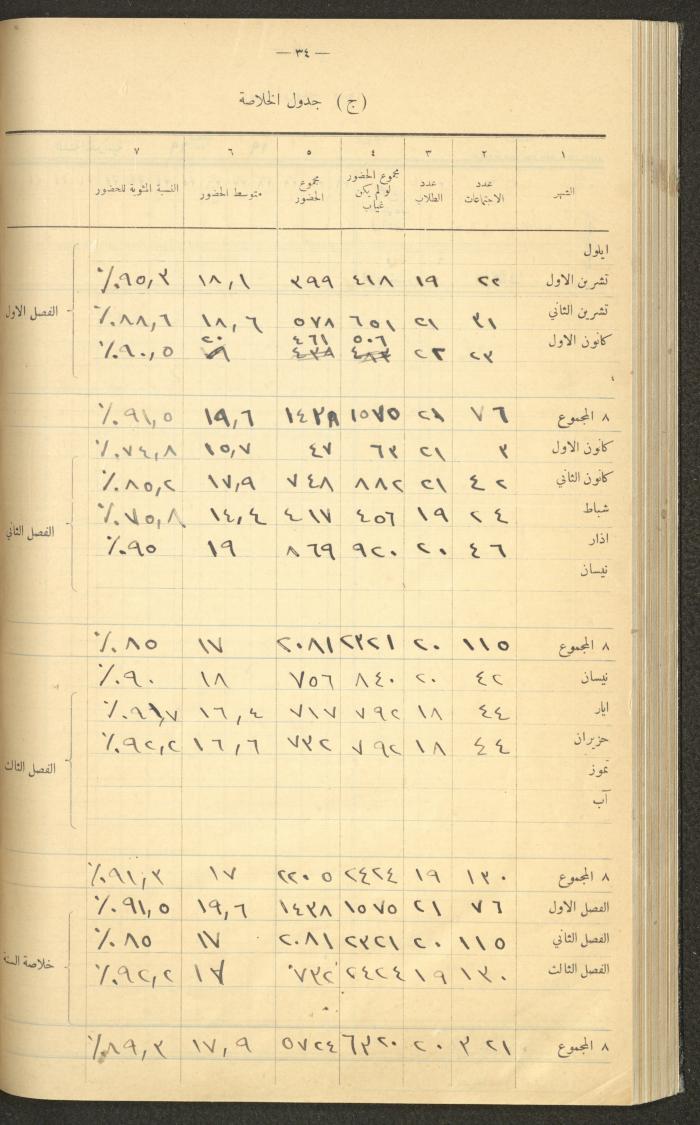 — ٣٤ —
(ج) جدول الخلاصة
١ ٢ ٣ ٤ ٥ ٦ ٧
الشهر عدد الاجتماعات عدد الطلاب مجموع الحضور لو لم يكن غياب مجموع الحضور متوسط الحضور النسبة المئوية للحضور
ايلول
تشرين الاول ٢٢ ١٩ ٤١٨ ٣٩٩ ١٨,١ ٩٥,٣٪
الفصل الاول
تشرين الثاني ٣١ ٢١ ٦٥١ ٥٧٨ ١٨,٦ ٨٨,٦٪
٥٠٦ ٤٦١ ٢٠
كانون الاول ٢٣ ٢٢ ٤٨٣ ٤٣٨ ٩٠,٥٪
٨ المجموع ٧٦ ٢١ ١٥٧٥ ١٤٣٨ ١٩,٦ ٩١,٥٪
كانون الاول ٣ ٢١ ٦٣ ٤٧ ١٥,٧ ٧٤,٨٪
كانون الثاني ٤٢ ٢١ ٨٨٢ ٧٤٨ ١٧,٩ ٨٥,٢٪
شباط ٢٤ ١٩ ٤٥٦ ٤١٧ ١٤,٤ ٧٥,٨٪
الفصل الثاني
اذار ٤٦ ٢٠ ٩٢٠ ٨٦٩ ١٩ ٩٠٪
نيسان
٨ المجموع ١١٥ ٢٠ ٢٣٢١ ٢٠٨١ ١٧ ٨٥٪
نيسان ٤٢ ٢٠ ٨٤٠ ٧٥٦ ١٨ ٩٠٪
ايار ٤٤ ١٨ ٧٩٢ ٧١٧ ١٦,٤ ٩١,٧٪
حزيران ٤٤ ١٨ ٧٩٢ ٧٣٢ ١٦,٦ ٩٢,٢٪
الفصل الثالث
تموز
آب
٨ المجموع ١٣٠ ١٩ ٢٤٢٤ ٢٢٠٥ ١٧ ٩١,٣٪
الفصل الاول ٧٦ ٢١ ١٥٧٥ ١٤٣٨ ١٩,٦ ٩١,٥٪
الفصل الثاني ١١٥ ٢٠ ٢٣٢١ ٢٠٨١ ١٧ ٨٥٪
خلاصة السنة
الفصل الثالث ١٣٠ ١٩ ٢٤٢٤ ٧٣٢ ١٧ ٩٢,٢٪
٨ المجموع ٣٢١ ٢٠ ٦٣٢٠ ٥٧٢٤ ١٧,٩ ٨٩,٣٪